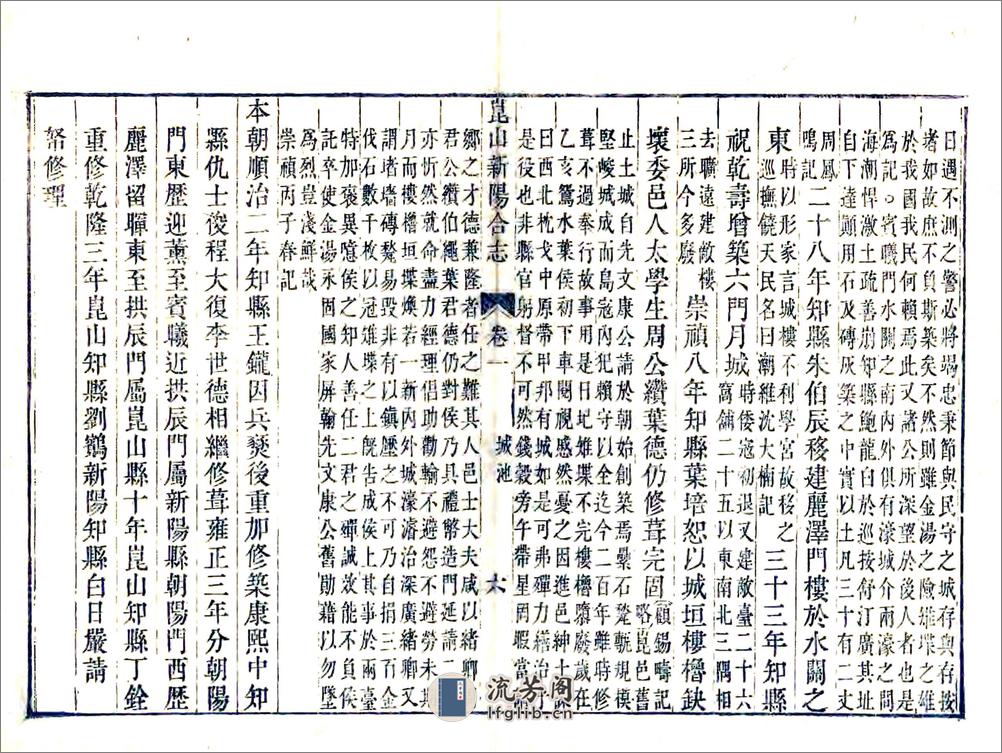 日遇不測之警必將竭忠秉節與民守之城存與存按
者如故庶不負斯築矣不然則雖金湯之險雉堞之雄
於我國我民何賴焉此又諸公所深望於後人者也是
為記。賓曦門水關之南內外俱有濠城介兩濠之間
海潮悍激土疏善崩知縣鮑龍白於巡按舒汀廣其址
自下達顛用石及磚灰築之中實以土凡三十有二丈
周鳳鳴記二十八年知縣朱伯辰移建麗澤門樓於水關之
東時以形家言城樓不利學宮故移之巡撫饒天民名曰潮維沈大楠記三十三年知縣
祝乾壽增築六門月城時倭寇初退又建敵臺二十六窩鋪二十五以東南北三隅相
去職遠建敵樓三所今多廢崇禎八年知縣葉培恕以城垣樓櫓缺
壞委邑人太學生周公纘葉德仍修葺完固顧錫疇記略崑邑舊
止土城自先文康公請於朝始創築焉纍石甃甎規模
堅峻城成而島寇內犯賴守以全迄今二百年雖時修
葺不過奉行故事用是日圮雉堞不完樓櫓隳廢歲在
乙亥鴛水葉侯初下車閱視感然憂之因進邑紳士
曰西北枕戈中原帶甲邦有城如是可弗殫力繕治
是役也非縣官躬督不可然錢穀旁午帶星罔暇當
崑山新陽合志 卷一 城池 六
鄉之才德兼隆者任之難其人邑士大夫咸以緒卿
君公纘伯繩葉君德仍對侯乃具禮幣造門延請二
亦忻然就命盡力經理倡助勸輸不避怨不避勞未
月而樓櫓垣堞煥若一新內外城濠濬治深廣緒卿又
謂堵墻磚甃易毀非有以鎮壓之不可乃自捐
伐石數千丈枚以冠雉堞之上旣告成侯上其事於兩臺
特加褒異噫侯之知人善任二君之殫誠效能不負侯
託卒使金湯永固國家屏翰先文康公舊勛藉以
為烈豈淺鮮哉
崇禎丙子春記
本朝順治二年知縣王鑨因兵燹後重加修築康熙中知
縣仇士俊程大復李世德相繼修葺雍正三年分朝陽
門東歷迎薰至賓曦近拱辰門屬新陽縣朝陽門西歷
麗澤留暉東至拱辰門屬崑山縣十年崑山知縣丁銓
重修乾隆三年崑山知縣劉鷀新陽知縣白日嚴請
帑修理
流芳閣
lfglib.cn